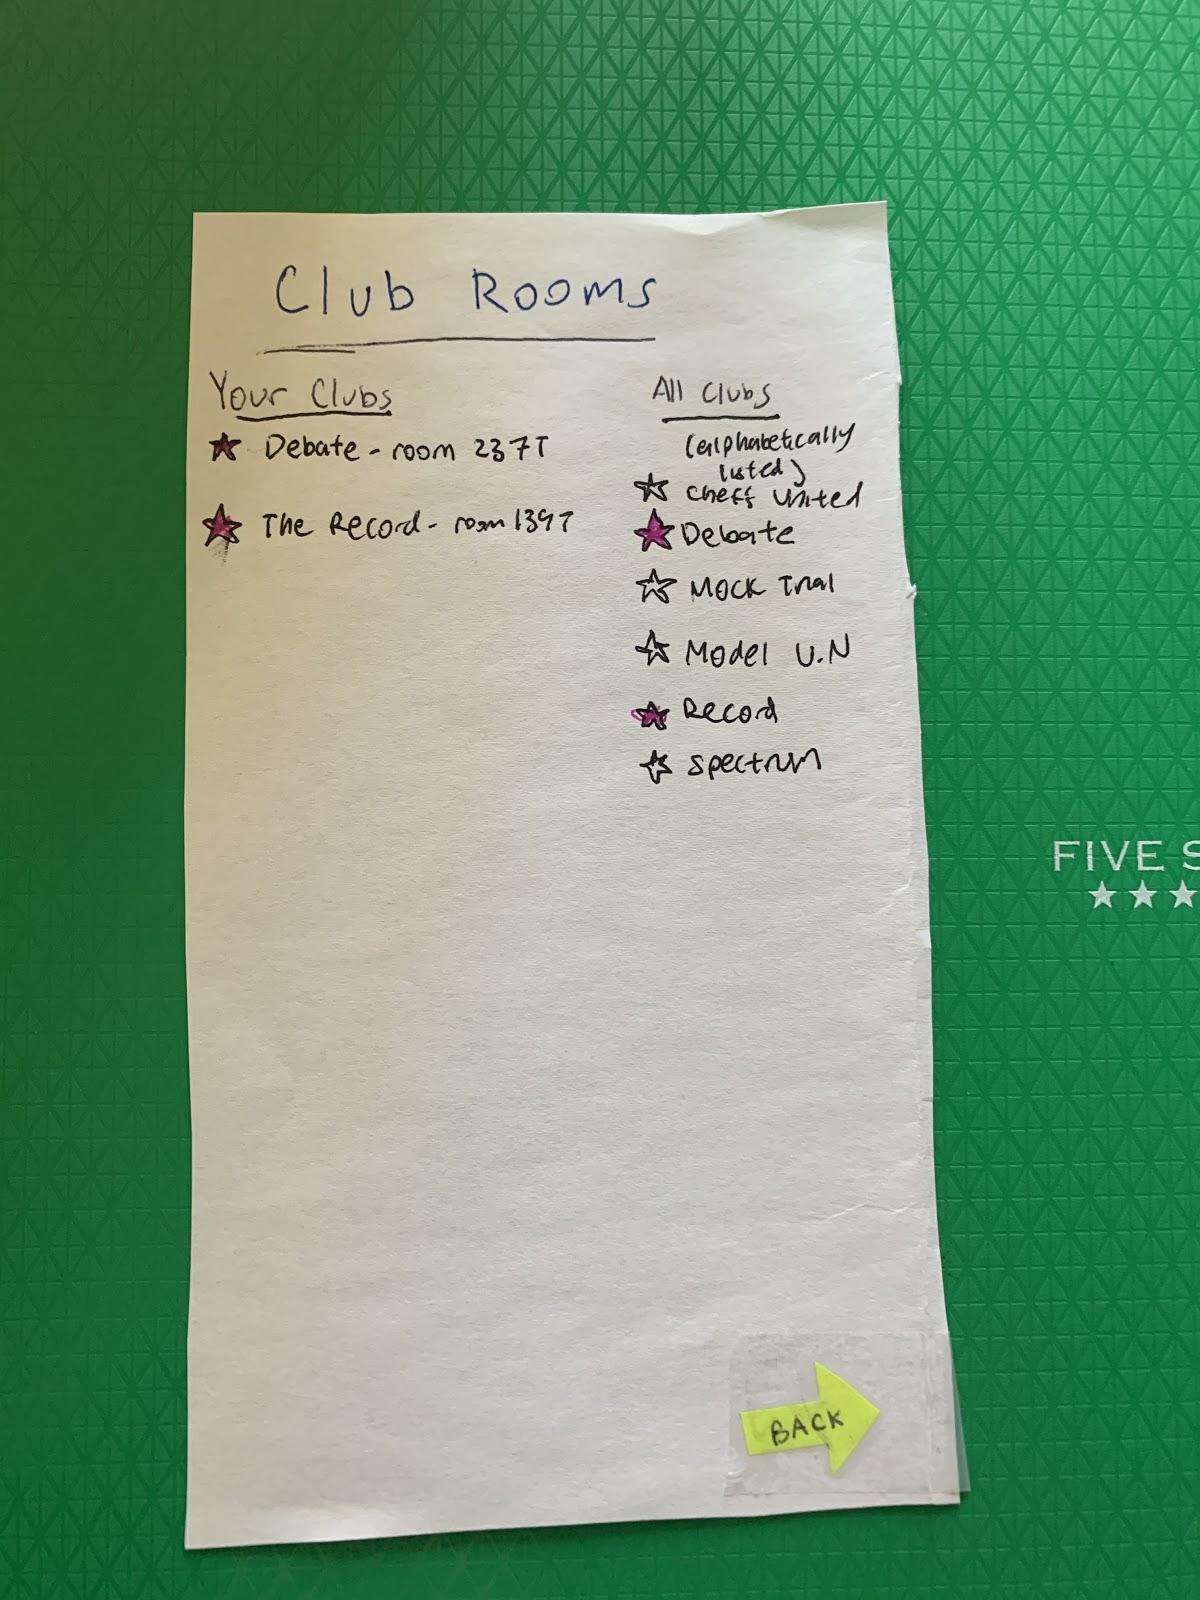 Club Rooms
Your Clubs
Debate - room 237T
The Record - room 139T
All Clubs
(alphabetically
listed)
Cheff United
Debate
Mock Trial
Model U.N
Record
Spectrum
FIVE S
BACK